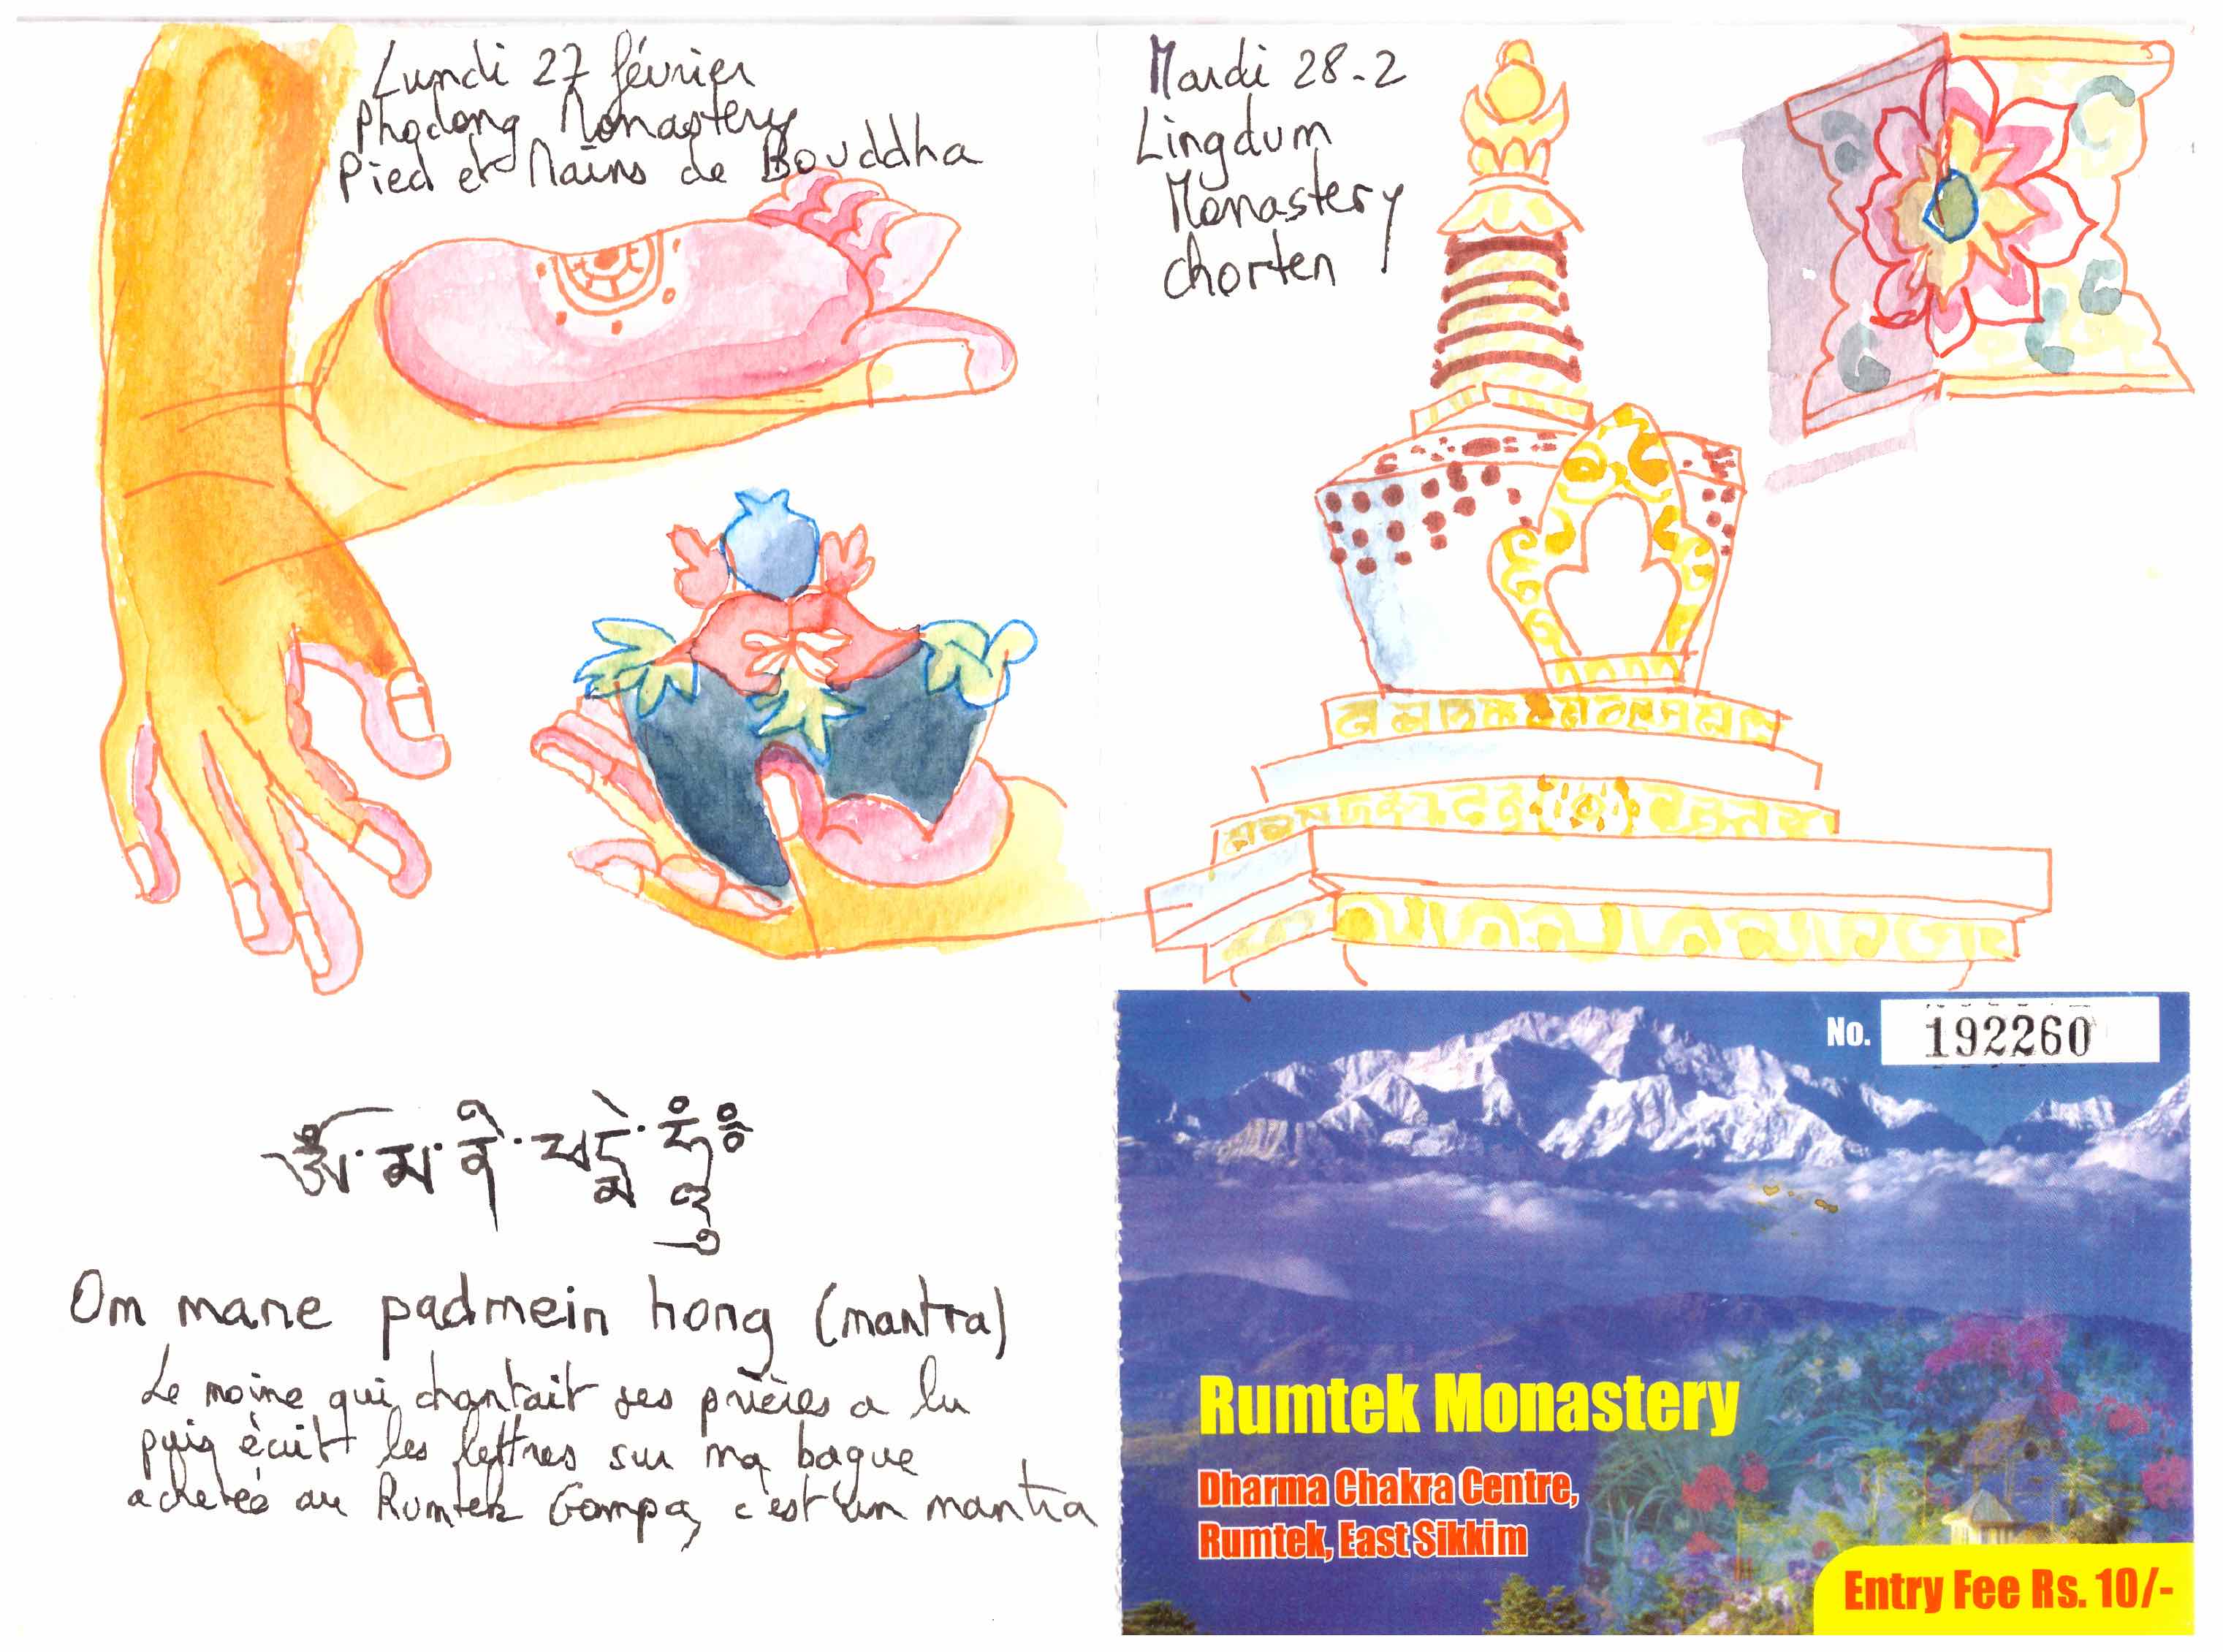 Lundi 27 février
Phodong Monastery
Pied et Mains de Bouddha
Mardi 28-2
Lingdum
Monastery
chorten
ༀ་མ་ནི་པདྨེ་ཧཱུྃ༔
Om mane padmein hong (mantra)
Le moine qui chantait ses prières a lu
puis écrit les lettres sur ma bague
achetée au Rumtek Gompa, c'est un mantra
No. 192260
Rumtek Monastery
Dharma Chakra Centre,
Rumtek, East Sikkim
Entry Fee Rs. 10/-